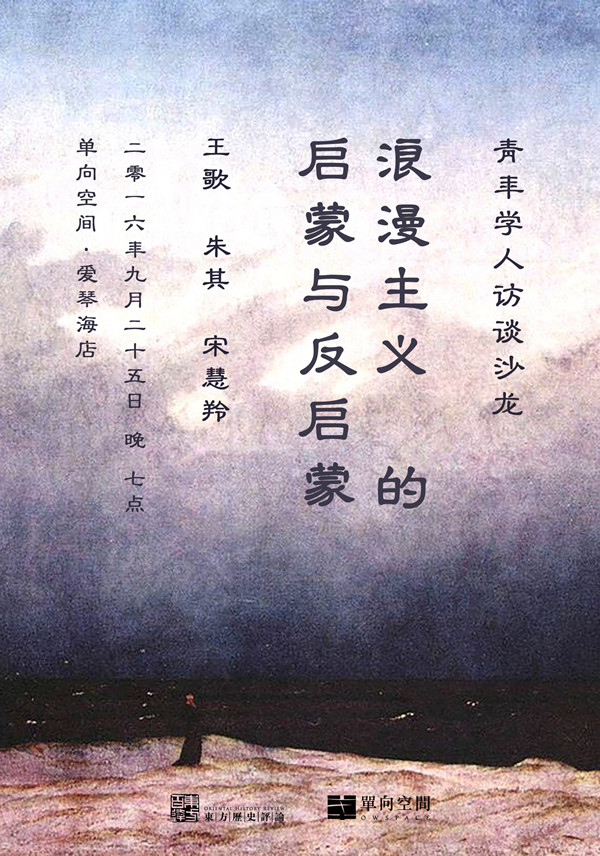 青年学人访谈沙龙
浪漫主义 的
启蒙与反启蒙
王歌 朱其 宋慧羚
二零一六年九月二十五日 晚 七点
单向空间·爱琴海店
ORIENTAL HISTORY REVIEW
東方歷史評論
單向空間
OWSPACE